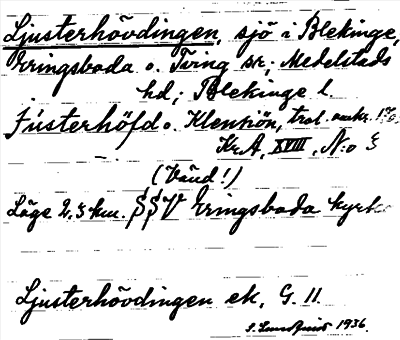 Ljusterhövdingen, sjö i Blekinge,
Eringsboda o. Tving sr; Medelstads
hd; Blekinge l.
Jústerhöfd o. Klensiön, trol. omkr.
KrA, XVIII, N:o
(Vänd!)
Läge 2,3 km. SSV Eringsboda kyrka
Ljusterhövdingen ek, G. 11.
1936.